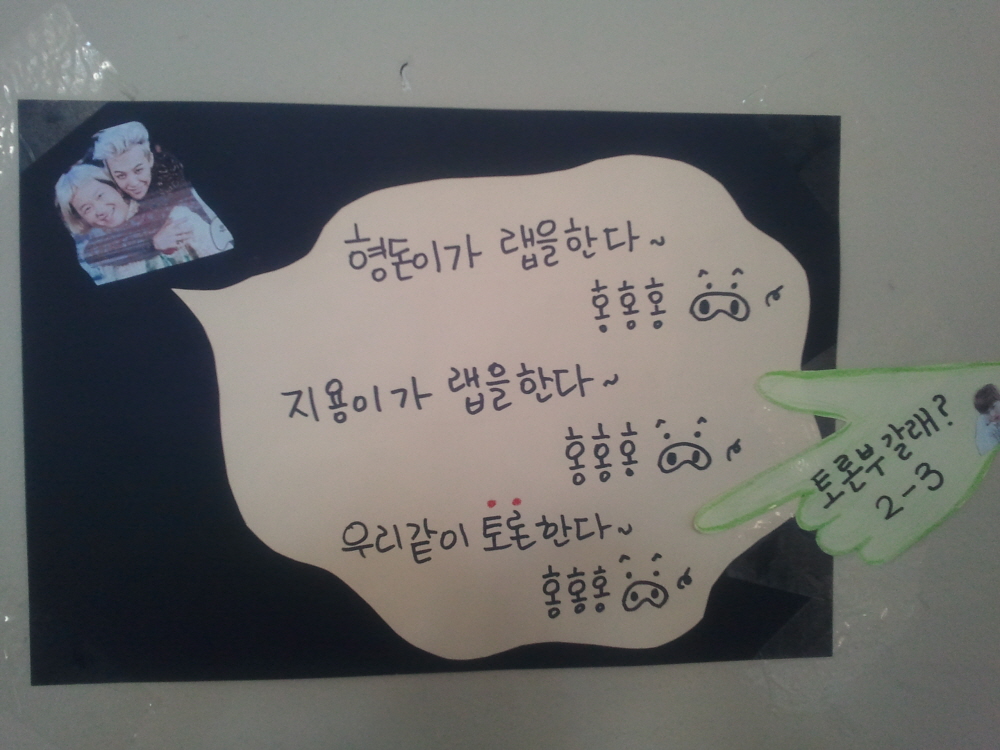 형돈이가 랩을한다~
홍홍홍
지용이가 랩을한다~
홍홍홍
우리같이 토론한다~
홍홍홍
토론부갈래?
2-3